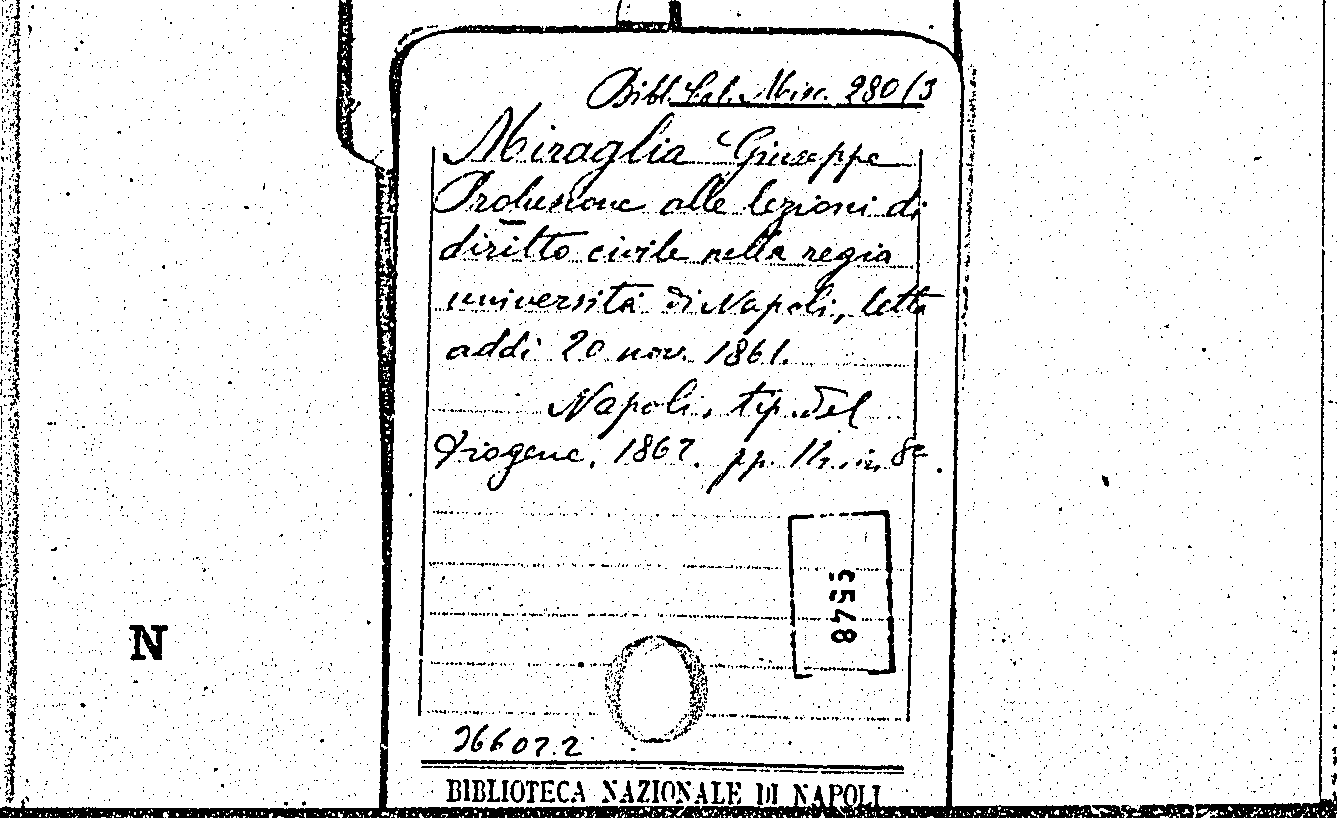 Bibl. Cal. Misc. 280/3
Miraglia Giuseppe
Prolusione alle lezioni di
diritto civile nella regia
università di Napoli, letta
addì 20 nov. 1861.
Napoli, tip. del
Diogene, 1862. pp. in 8º.
8455
N
36607.2
BIBLIOTECA NAZIONALE DI NAPOLI